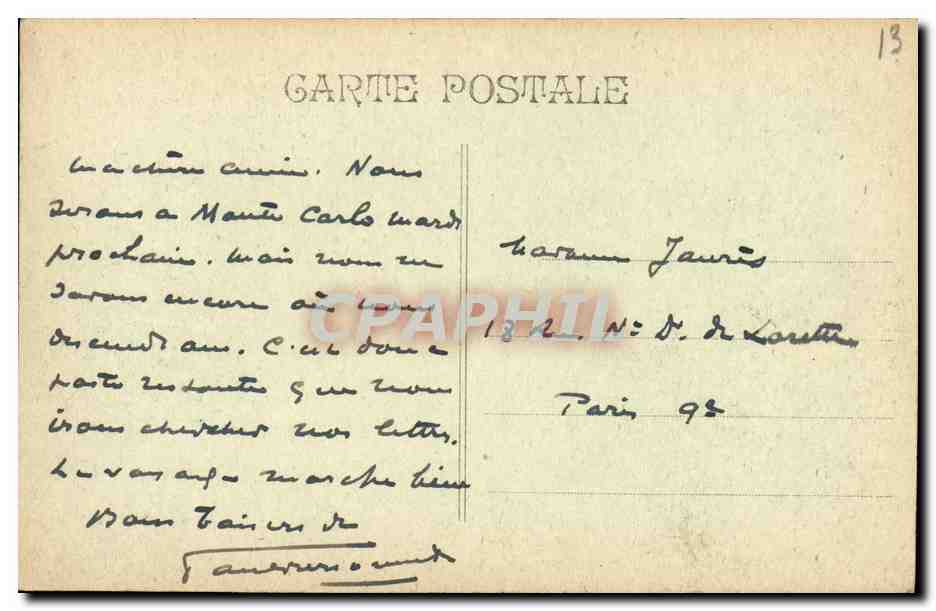 13
CARTE POSTALE
Ma chère amie. Nous
serons à Monte Carlo mardi
prochain. Mais nous ne
savons encore où nous
descendrons. C'est donc à
poste restante que nous
irons chercher nos lettres.
Le voyage marche bien
Bons baisers de
Madame Jaurès
18 R. N= D. de Lorette
Paris 9e
CPAPHIL